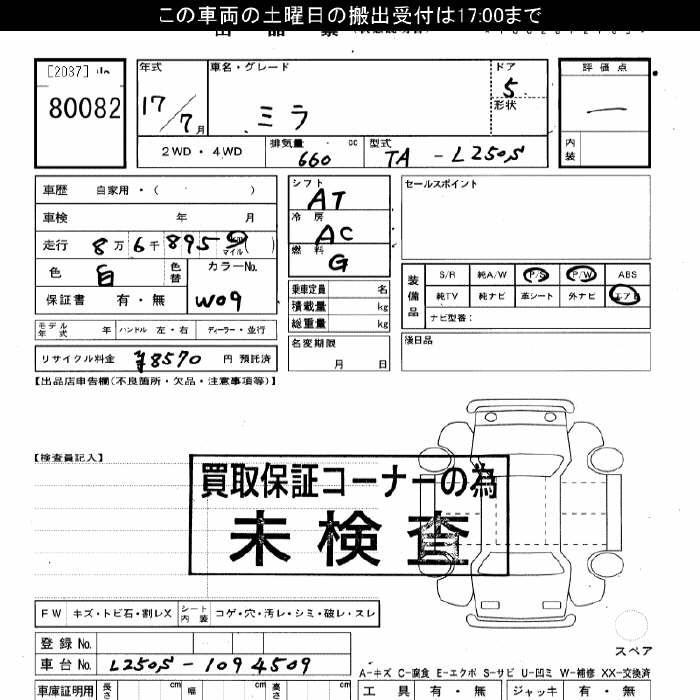 この車両の土曜日の搬出受付は17:00まで
[2037]
80082
年式 17/7月
車名・グレード ミラ
ドア 5
形状
評価点
内装
2WD・4WD
排気量 660 cc
型式 TA - L250S
車歴 自家用・( )
車検 年 月
走行 8万6千895 km マイル( )
色 白 色替
カラーNo. W09
保証書 有・無
モデル年式 年 ハンドル 左・右 ディーラー・並行
リサイクル料金 ¥8570 円 預託済
シフト AT
冷房 AC
燃料 G
乗車定員 名
積載量 kg
総重量 kg
名変期限 月 日
セールスポイント
装備品
S/R 純A/W P/S P/W ABS
純TV 純ナビ 革シート 外ナビ エアB
ナビ型番:
後日品
【出品店申告欄(不良箇所・欠品・注意事項等)】
【検査員記入】
買取保証コーナーの為
未検査
FW キズ・トビ石・割レX シート内装 コゲ・穴・汚レ・シミ・破レ・スレ
スペア
登録No.
車台No. L250S-1094509
A-キズ C-腐食 E-エクボ S-サビ U-凹ミ W-補修 XX-交換済
車庫証明用 長さ cm 幅 cm 高さ cm
工具 有・無 ジャッキ 有・無